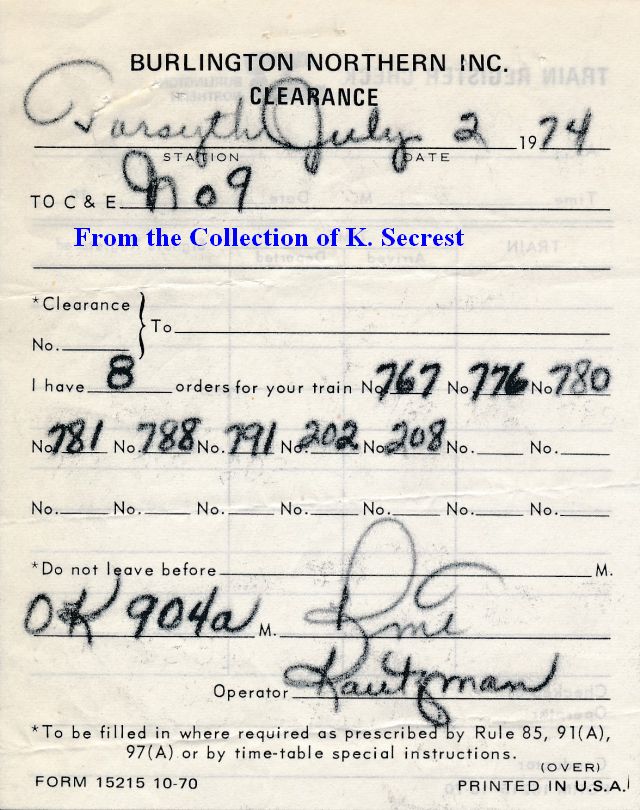 BURLINGTON NORTHERN INC.
CLEARANCE
Forsyth July 2 1974
STATION DATE
TO C & E No 9
From the Collection of K. Secrest
*Clearance
No. To
I have 8 orders for your train No. 767 No. 776 No. 780
No. 781 No. 788 No. 791 No. 202 No. 208 No. No.
No. No. No. No. No. No. No.
*Do not leave before M.
OK 904a M.
Operator Kautzman
*To be filled in where required as prescribed by Rule 85, 91(A),
97(A) or by time-table special instructions.
(OVER)
FORM 15215 10-70 PRINTED IN U.S.A.